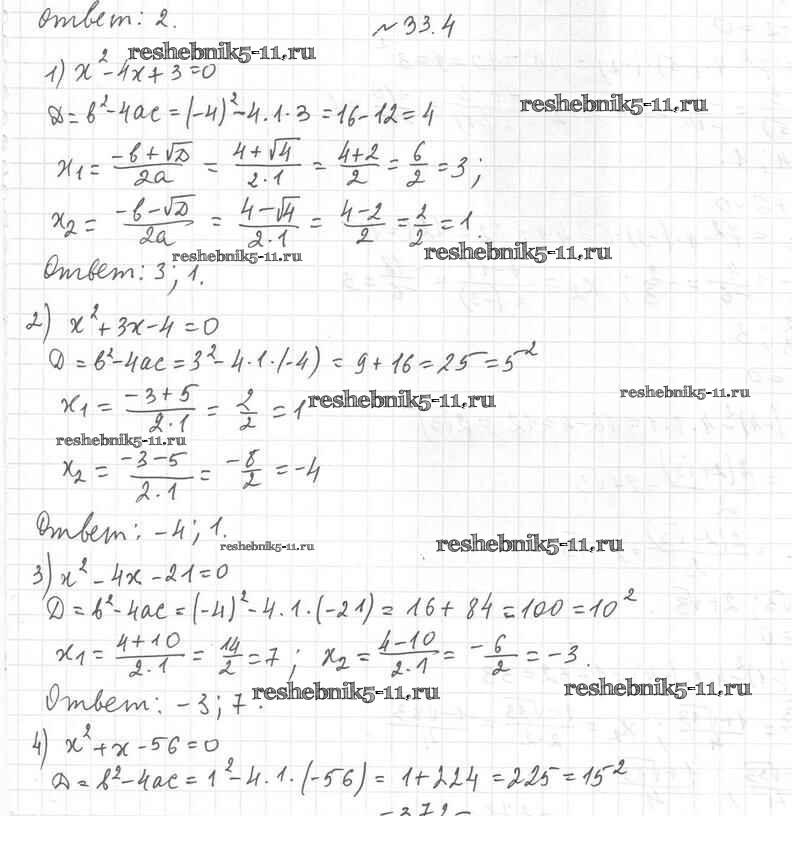 Ответ: 2.
№ 33.4
reshebnik5-11.ru
1) x² - 4x + 3 = 0
reshebnik5-11.ru
D = b² - 4ac = (-4)² - 4·1·3 = 16 - 12 = 4
x₁ = (-b + √D)/2a = (4 + √4)/(2·1) = (4+2)/2 = 6/2 = 3;
x₂ = (-b - √D)/2a = (4 - √4)/(2·1) = (4-2)/2 = 2/2 = 1.
reshebnik5-11.ru reshebnik5-11.ru
Ответ: 3; 1.
2) x² + 3x - 4 = 0
D = b² - 4ac = 3² - 4·1·(-4) = 9 + 16 = 25 = 5²
x₁ = (-3 + 5)/(2·1) = 2/2 = 1
reshebnik5-11.ru reshebnik5-11.ru
reshebnik5-11.ru
x₂ = (-3-5)/(2·1) = -8/2 = -4
Ответ: -4; 1.
reshebnik5-11.ru reshebnik5-11.ru
3) x² - 4x - 21 = 0
D = b² - 4ac = (-4)² - 4·1·(-21) = 16 + 84 = 100 = 10²
x₁ = (4+10)/(2·1) = 14/2 = 7; x₂ = (4-10)/(2·1) = -6/2 = -3.
Ответ: -3; 7.
reshebnik5-11.ru reshebnik5-11.ru
4) x² + x - 56 = 0
D = b² - 4ac = 1² - 4·1·(-56) = 1 + 224 = 225 = 15²